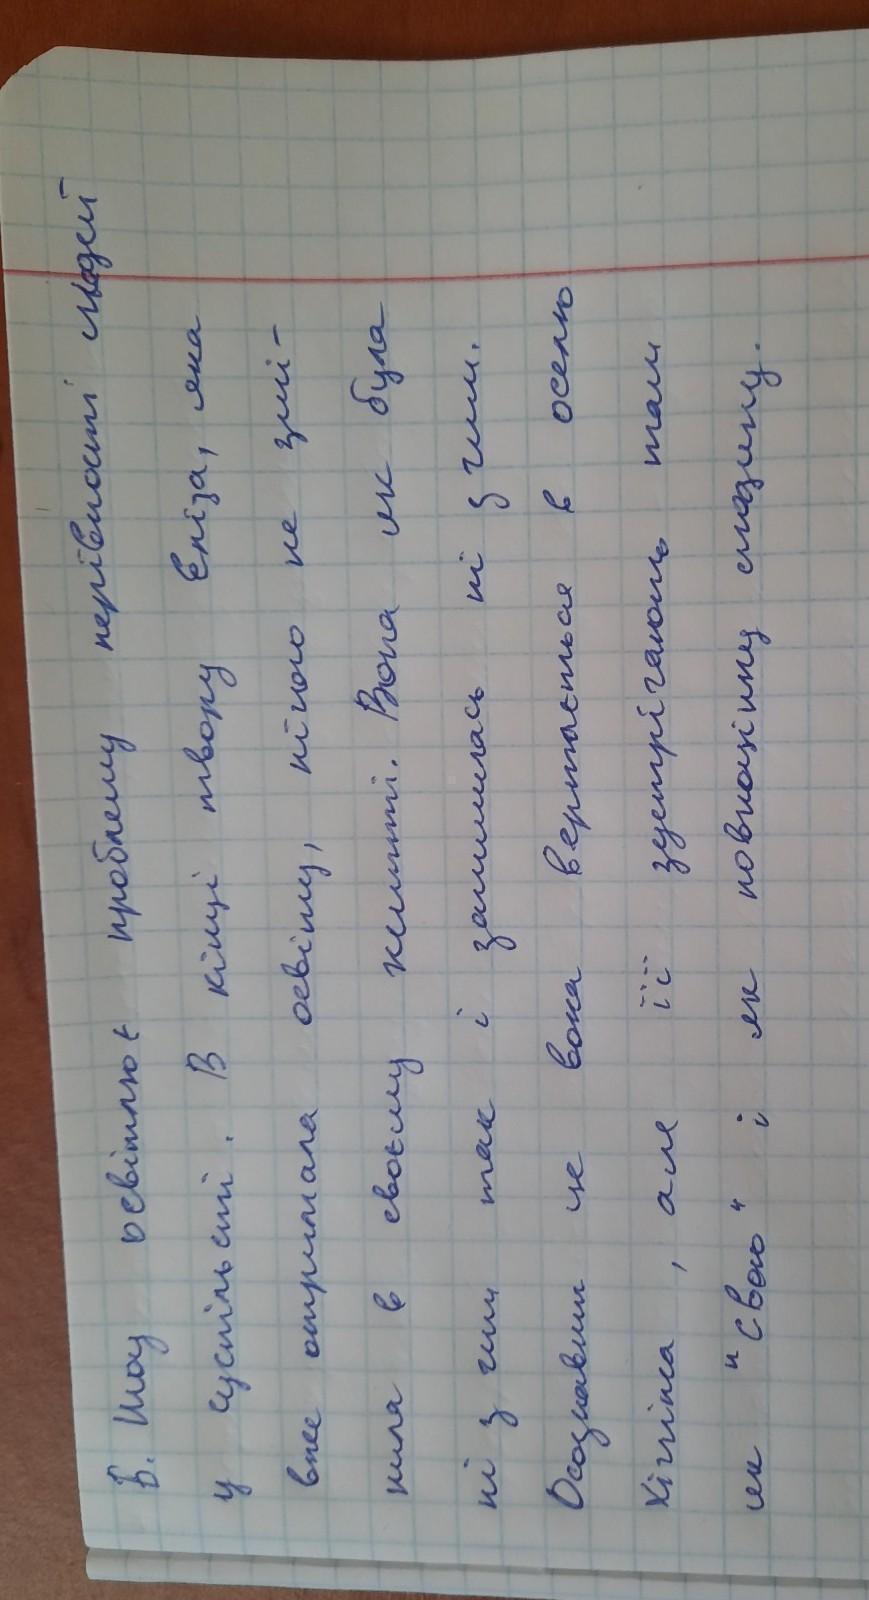 Б. Шоу освітлює проблему нерівності людей
у суспільсті. В кінці твору Еліза, яка
вже отримала освіту, нічого не змі-
нила в своєму житті. Вона як була
ні з чим так і залишилась ні з чим.
Осознавши це вона вертається в оселю
Хіггінса, але її зустрічають там
як "свою" і як повноцінну людину.